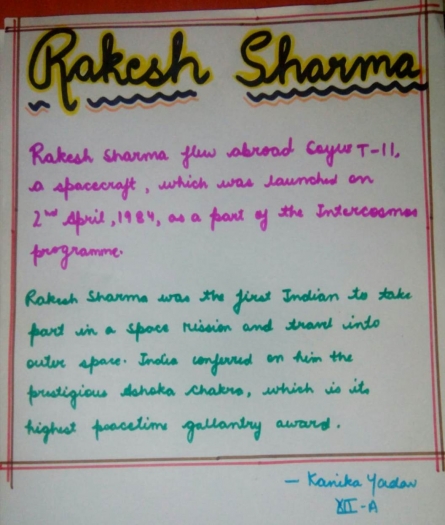 Rakesh Sharma
Rakesh Sharma flew abroad Soyus T-11,
a spacecraft, which was launched on
2nd April, 1984, as a part of the Intercosmos
programme.
Rakesh Sharma was the first Indian to take
part in a space mission and travel into
outer space. India conferred on him the
prestigious Ashoka Chakra, which is its
highest peacetime gallantry award.
- Kanika Yadav
XII-A